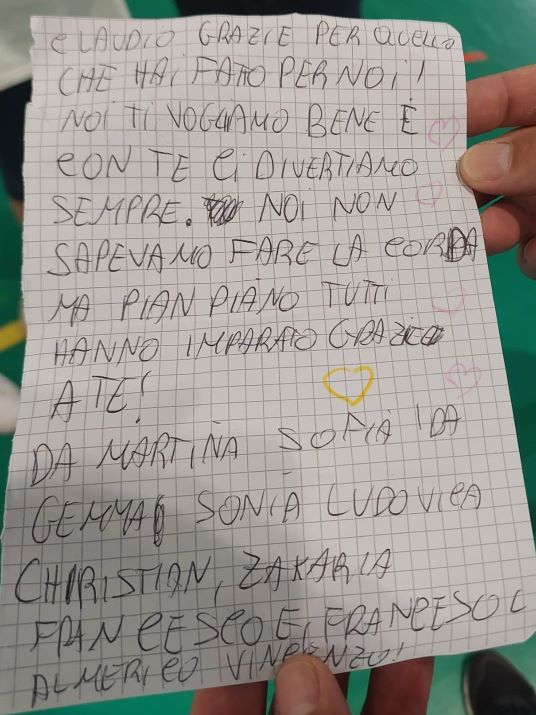 CLAUDIO GRAZIE PER QUELLO
CHE HAI FATTO PER NOI!
NOI TI VOGLIAMO BENE E
CON TE CI DIVERTIAMO
SEMPRE. NOI NON
SAPEVAMO FARE LA CORDA
MA PIAN PIANO TUTTI
HANNO IMPARATO GRAZIE
A TE!
DA MARTINA SOFIA IDA
GEMMA SONIA LUDOVICA
CHIRISTIAN, ZAKARIA
FRANCESCO E, FRANCESO C
ALMERICO VINCENZO!